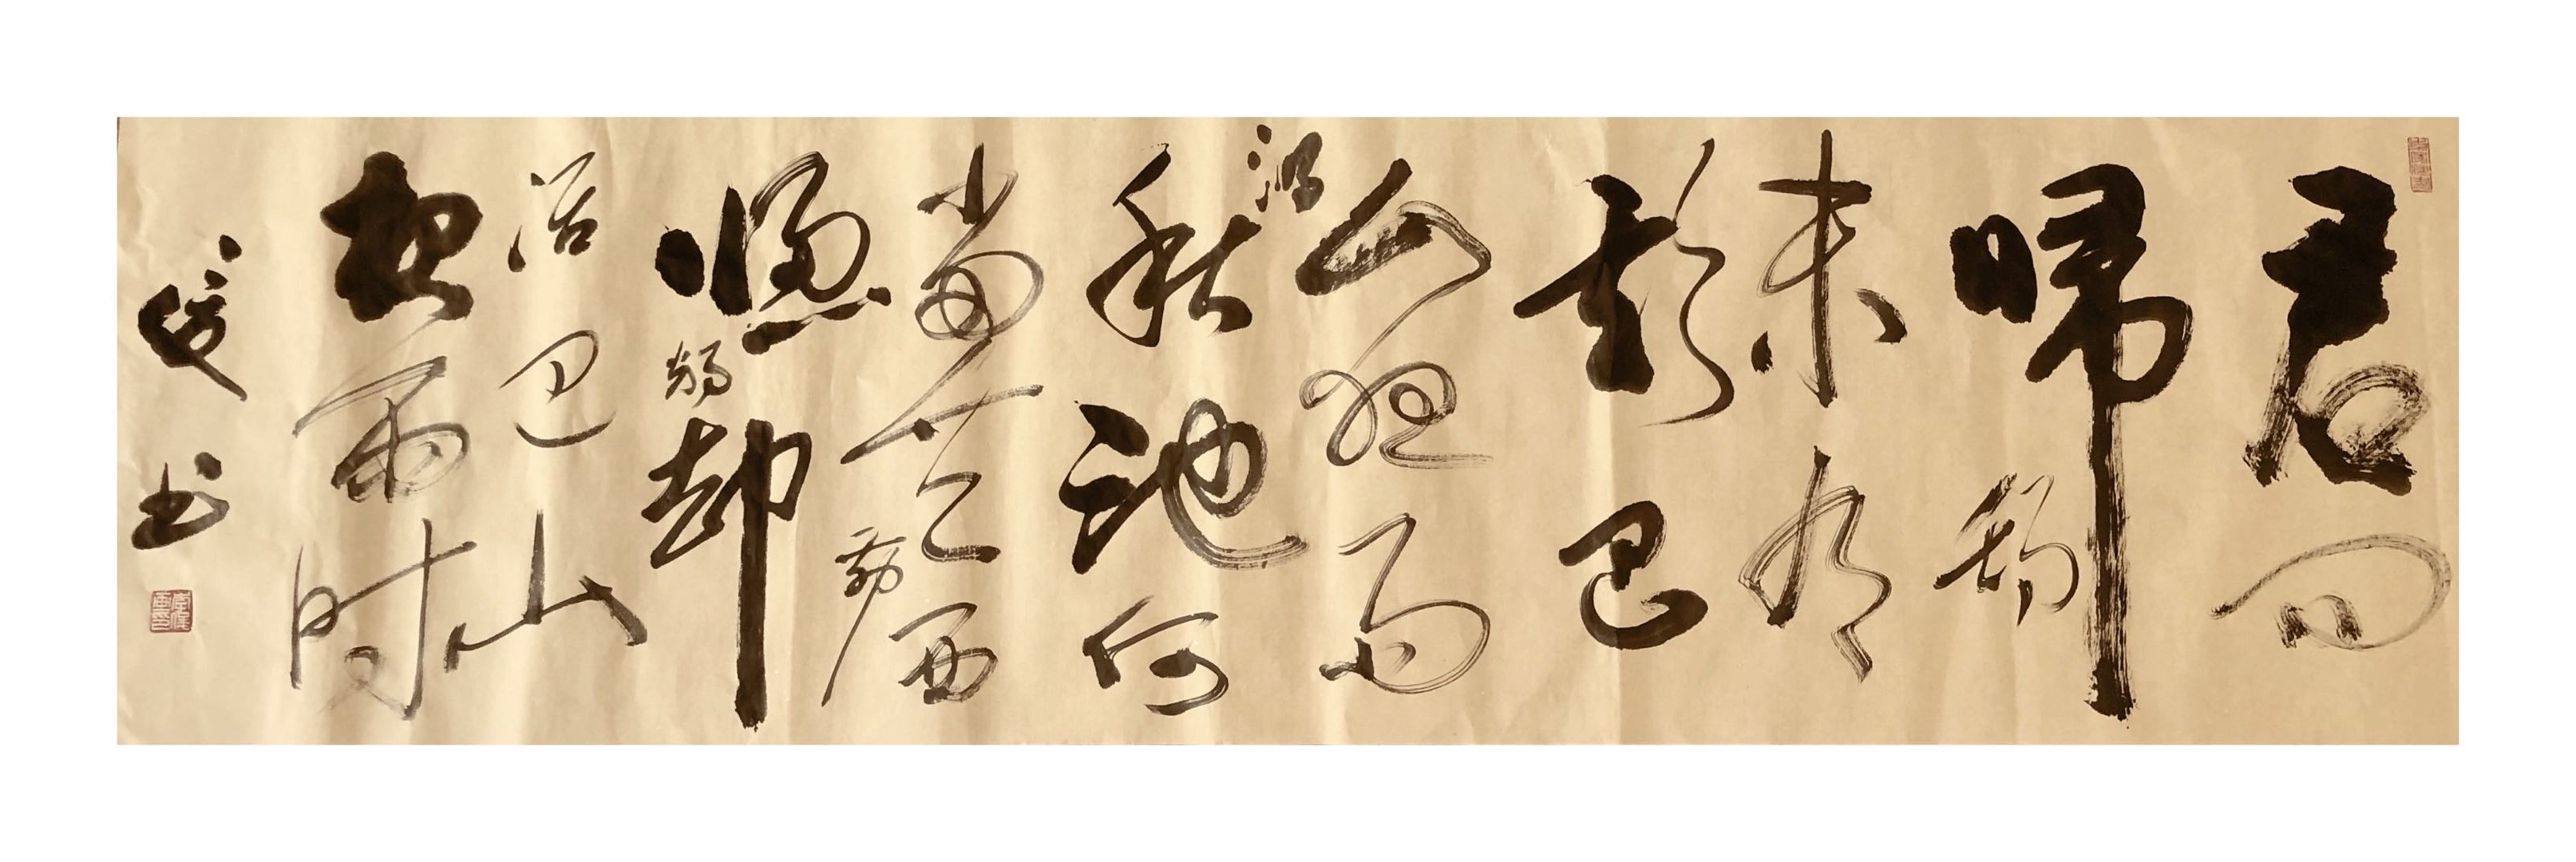 君问
歸期
未有
期巴
山夜雨
漲秋池何
当共剪西
窗烛却
话巴山
夜雨时
书